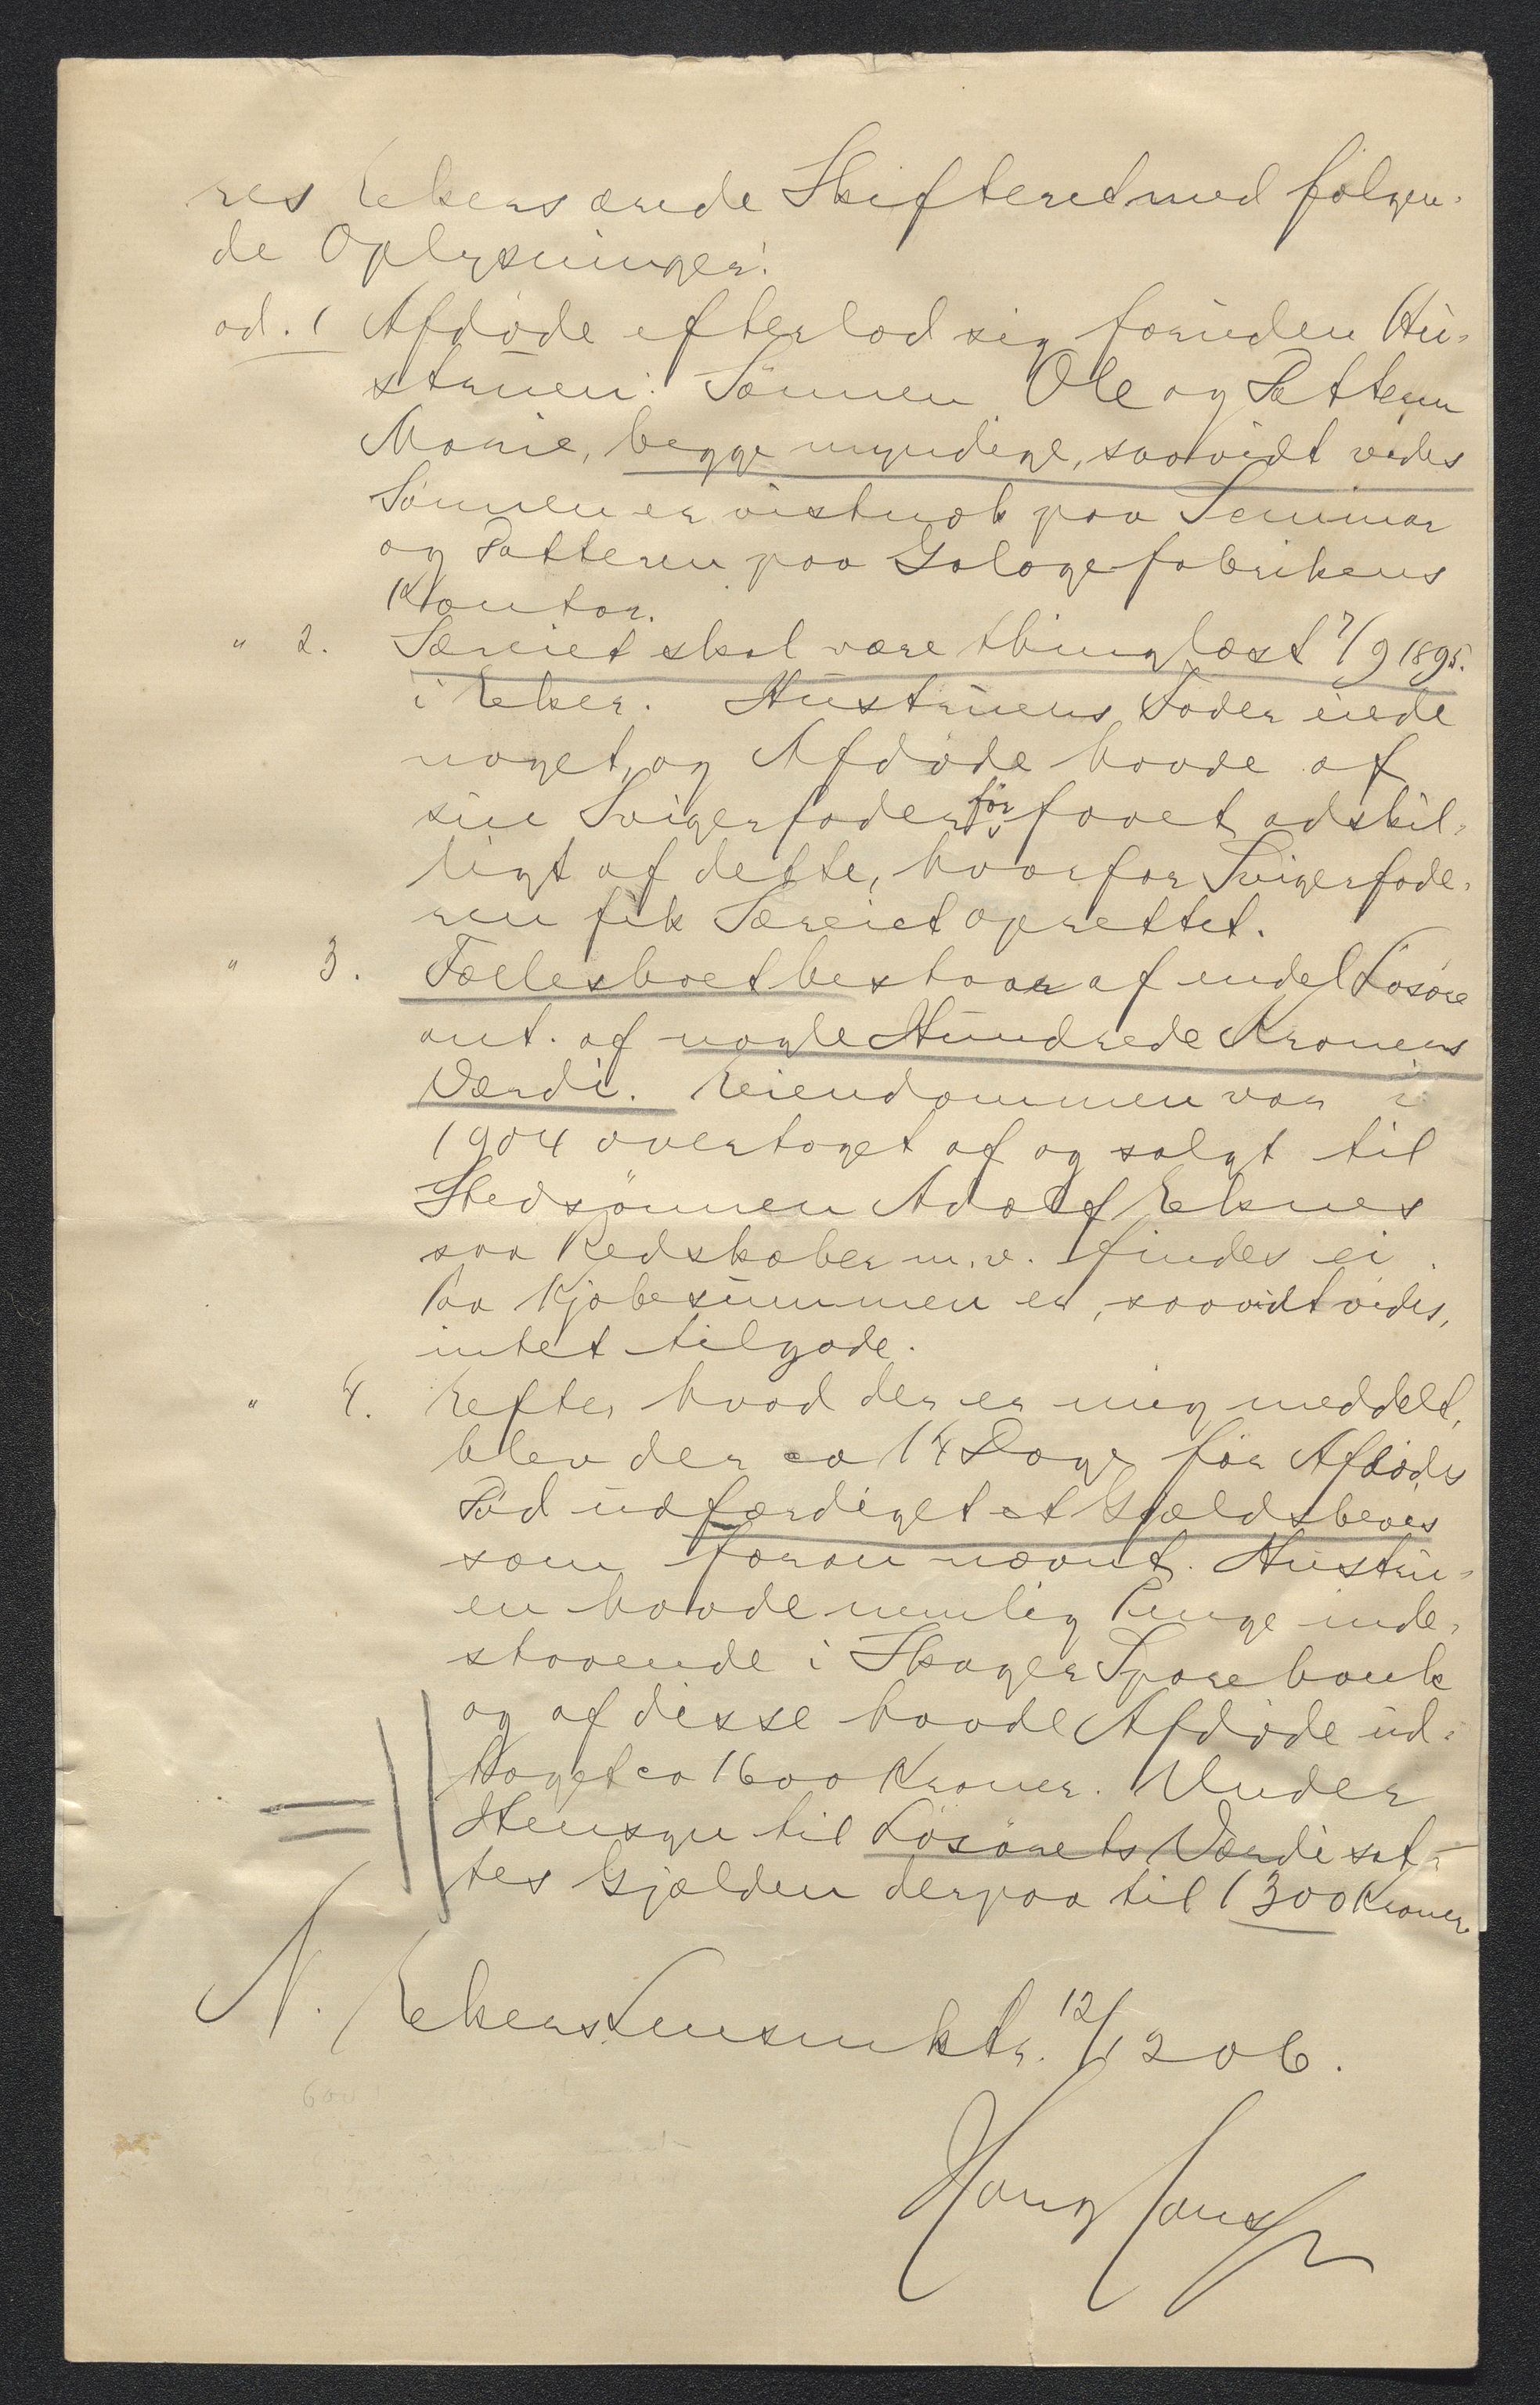 res Ekers ærede Skifteret med følgen-
de Oplysninger:
ad. 1 Afdøde efterlod sig foruden Hu-
struen: Sønnen Ole og Datteren
Marie, begge myndige, saavidt vides
Sønnen er vistnok paa Seminar
og Datteren paa Galogefabrikens
Kontor.
" 2. Særeiet skal være thinglæst 7/9 1895.
i Eker. Hustruens Fader eiede
noget, og Afdøde havde af
sin Svigerfader før faaet adskil-
ligt af dette, hvorfor Svigerfade-
ren fik Særeiet oprettet.
" 3. Fællesboet bestaar af endel Løsøre
ant. af nogle Hundrede Kroners
Værdi. Eiendommen var i
1904 overtaget af og solgt til
Stedsønnen Adolf Eknes
saa Redskaber m.v. findes ei.
Paa Kjøbesummen er, saavidt vides,
intet tilgode.
" 4. Efter hvad der er mig meddelt,
blev der ca 14 Dage før Afdødes
Død udfærdiget et Gjældsbevis
som foran nævnt. Hustru-
en havde nemlig Penge inde-
staaende i Skoger Sparebank
og af disse havde Afdøde ud-
taget ca 1600 Kroner. Under
Hensyn til Løsørets Værdi sat-
tes Gjælden derpaa til 1300 Kroner.
N. Ekers Lensmktr. 12/12 06.